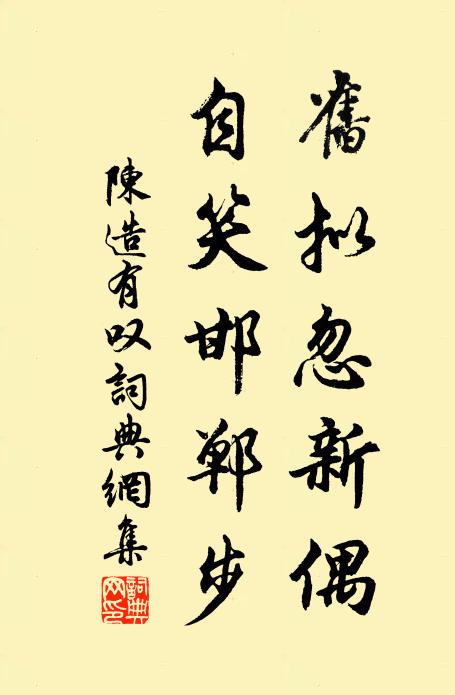 舊拟忽新偶
自笑邯鄲步
陳造有叹詞典網集
詞典網印